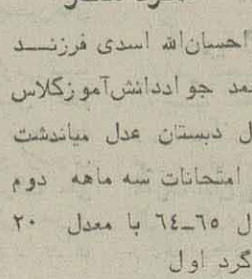 احسان‌الله اسدی فرزنـــد
مد جو اددانش‌آموزکلاس
دبستان عدل میاندشت
امتحانات سه ماهه دوم
ل ٦٥ــ٦٤ با معدل ۲۰
گرد اول